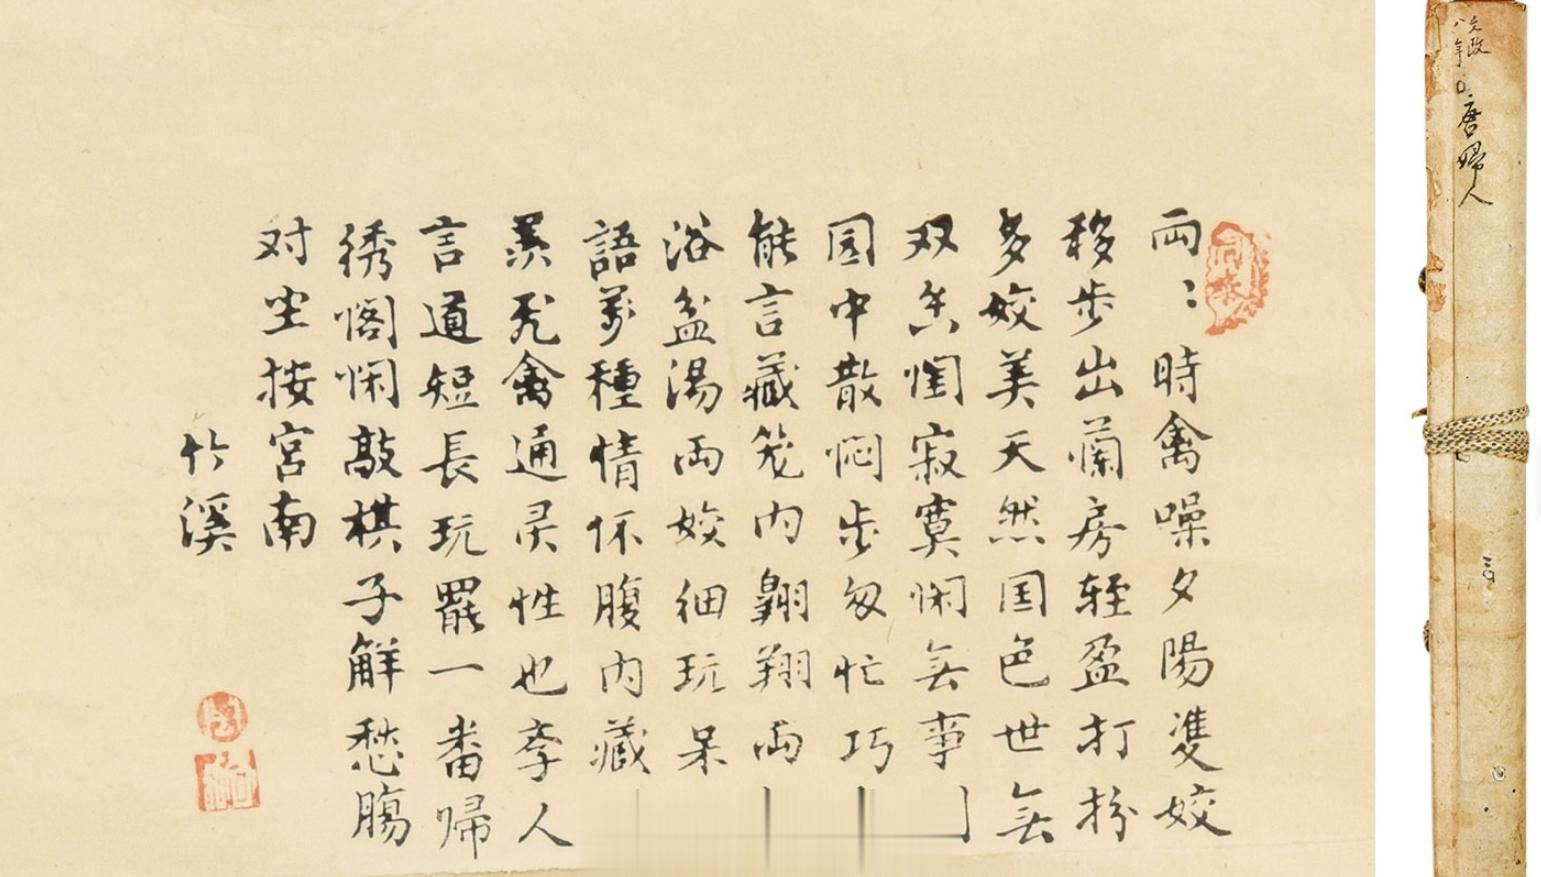 両〻時禽噪夕陽雙姣
移步出蘭房軽盈打扮
多姣美天然国色世無
双闺寂寞闲無事
园中散闷步匆忙巧
能言藏笼内翱翔両
浴盆湯両姣细玩呆
語萬種情怀腹内藏
羨禽通灵性也学人
言道短長玩罷一番歸
绣阁闲敲棋子解愁腸
对坐按宮南
竹溪
文政
八年
唐婦人